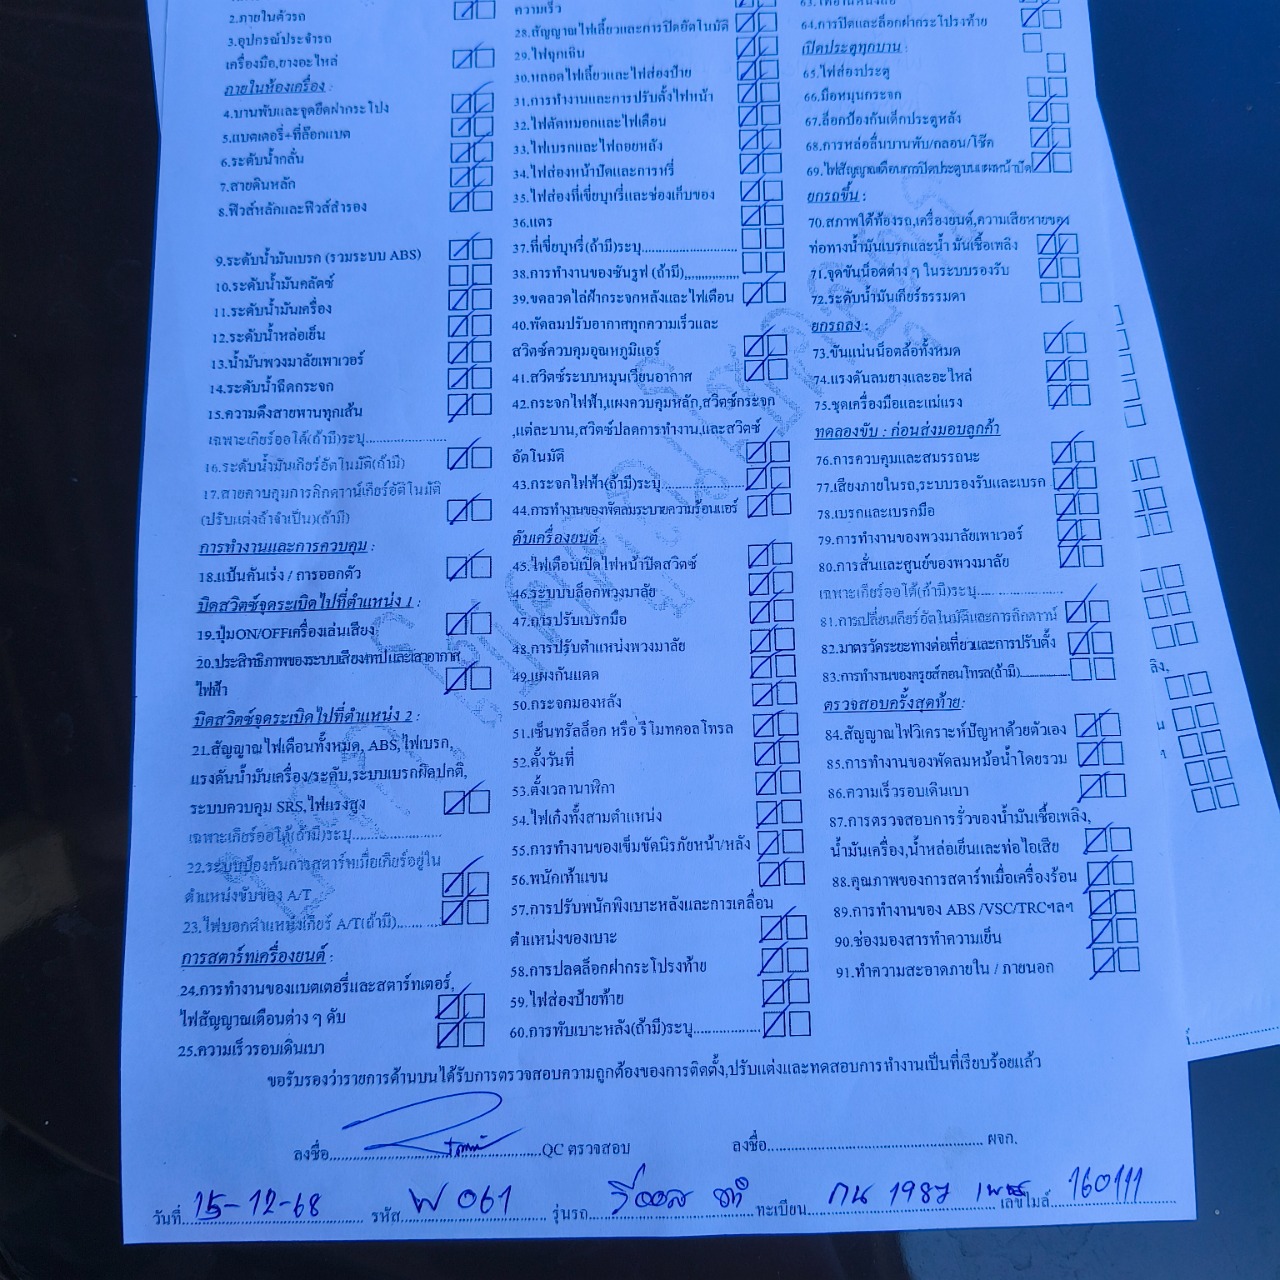 2.ภายในตัวรถ
3.อุปกรณ์ประจำรถ
เครื่องมือ,ยางอะไหล่
ภายในห้องเครื่อง :
4.บานพับและจุดยึดฝากระโปง
5.แบตเตอรี่+ที่ล๊อกแบต
6.ระดับน้ำกลั่น
7.สายดินหลัก
8.ฟิวส์หลักและฟิวส์สำรอง
9.ระดับน้ำมันเบรก (รวมระบบ ABS)
10.ระดับน้ำมันคลัตช์
11.ระดับน้ำมันเครื่อง
12.ระดับน้ำหล่อเย็น
13.น้ำมันพวงมาลัยเพาเวอร์
14.ระดับน้ำฉีดกระจก
15.ความตึงสายพานทุกเส้น
เฉพาะเกียร์ออโต้(ถ้ามี)ระบุ
16.ระดับน้ำมันเกียร์อัตโนมัติ(ถ้ามี)
17.สายควบคุมการคิกดาวน์เกียร์อัติโนมัติ
(ปรับแต่งถ้าจำเป็น)(ถ้ามี)
การทำงานและการควบคุม :
18.แป้นคันเร่ง / การออกตัว
บิดสวิตช์จุดระเบิดไปที่ตำแหน่ง 1 :
19.ปุ่มON/OFFเครื่องเล่นเสียง
20.ประสิทธิภาพของระบบเสียงเทปและเสาอากาศ
ไฟฟ้า
บิดสวิตซ์จุดระเบิดไปที่ตำแหน่ง 2 :
21.สัญญาณไฟเตือนทั้งหมด, ABS,ไฟเบรก,
แรงดันน้ำมันเครื่อง/ระดับ,ระบบเบรกผิดปกติ,
ระบบควบคุม SRS,ไฟแรงสูง
เฉพาะเกียร์ออโต้(ถ้ามี)ระบุ
22.ระบบป้องกันการสตาร์ทเมื่อเกียร์อยู่ใน
ตำแหน่งขับของ A/T
23.ไฟบอกตำแหน่งเกียร์ A/T(ถ้ามี)
การสตาร์ทเครื่องยนต์ :
24.การทำงานของแบตเตอรี่และสตาร์ทเตอร์,
ไฟสัญญาณเตือนต่าง ๆ ดับ
25.ความเร็วรอบเดินเบา
ความเร็ว
28.สัญญาณไฟเลี้ยวและการปิดอัตโนมัติ
29.ไฟฉุกเฉิน
30.หลอดไฟเลี้ยวและไฟส่องป้าย
31.การทำงานและการปรับตั้งไฟหน้า
32.ไฟตัดหมอกและไฟเตือน
33.ไฟเบรกและไฟถอยหลัง
34.ไฟส่องหน้าปัดและการหรี่
35.ไฟส่องที่เขี่ยบุหรี่และช่องเก็บของ
36.แตร
37.ที่เขี่ยบุหรี่(ถ้ามี)ระบุ
38.การทำงานของซันรูฟ (ถ้ามี)
39.ขดลวดไล่ฝ้ากระจกหลังและไฟเตือน
40.พัดลมปรับอากาศทุกความเร็วและ
สวิตช์ควบคุมอุณหภูมิแอร์
41.สวิตช์ระบบหมุนเวียนอากาศ
42.กระจกไฟฟ้า,แผงควบคุมหลัก,สวิตช์กระจก
,แต่ละบาน,สวิตช์ปลดการทำงาน,และสวิตช์
อัตโนมัติ
43.กระจกไฟฟ้า(ถ้ามี)ระบุ
44.การทำงานของพัดลมระบายความร้อนแอร์
ดับเครื่องยนต์ :
45.ไฟเตือนเปิดไฟหน้าปิดสวิตช์
46.ระบบบล็อกพวงมาลัย
47.การปรับเบรกมือ
48.การปรับตำแหน่งพวงมาลัย
49.แผงกันแดด
50.กระจกมองหลัง
51.เซ็นทรัลล็อก หรือ รีโมทคอลโทรล
52.ตั้งวันที่
53.ตั้งเวลานาฬิกา
54.ไฟเก๋งทั้งสามตำแหน่ง
55.การทำงานของเข็มขัดนิรภัยหน้า/หลัง
56.พนักเท้าแขน
57.การปรับพนักพิงเบาะหลังและการเคลื่อน
ตำแหน่งของเบาะ
58.การปลดล็อกฝากระโปรงท้าย
59.ไฟส่องป้ายท้าย
60.การพับเบาะหลัง(ถ้ามี)ระบุ
64.การปิดและล็อกฝากระโปรงท้าย
เปิดประตูทุกบาน :
65.ไฟส่องประตู
66.มือหมุนกระจก
67.ล็อกป้องกันเด็กประตูหลัง
68.การหล่อลื่นบานพับ/กลอน/โช๊ก
69.ไฟสัญญาณเตือนการปิดประตูบนแผงหน้าปัด
ยกรถขึ้น :
70.สภาพใต้ท้องรถ,เครื่องยนต์,ความเสียหายของ
ท่อทางน้ำมันเบรกและน้ำ มันเชื้อเพลิง
71.จุดขันน็อตต่าง ๆ ในระบบรองรับ
72.ระดับน้ำมันเกียร์ธรรมดา
ยกรถลง :
73.ขันแน่นน็อตล้อทั้งหมด
74.แรงดันลมยางและอะไหล่
75.ชุดเครื่องมือและแม่แรง
ทดลองขับ : ก่อนส่งมอบลูกค้า
76.การควบคุมและสมรรถนะ
77.เสียงภายในรถ,ระบบรองรับและเบรก
78.เบรกและเบรกมือ
79.การทำงานของพวงมาลัยเพาเวอร์
80.การสั่นและศูนย์ของพวงมาลัย
เฉพาะเกียร์ออโต้(ถ้ามี)ระบุ
81.การเปลี่ยนเกียร์อัตโนมัติและการคิกดาวน์
82.มาตรวัดระยะทางต่อเที่ยวและการปรับตั้ง
83.การทำงานของครูยส์คอนโทรล(ถ้ามี)
ตรวจสอบครั้งสุดท้าย:
84.สัญญาณไฟวิเคราะห์ปัญหาด้วยตัวเอง
85.การทำงานของพัดลมหม้อน้ำโดยรวม
86.ความเร็วรอบเดินเบา
87.การตรวจสอบการรั่วของน้ำมันเชื้อเพลิง,
น้ำมันเครื่อง,น้ำหล่อเย็นและท่อไอเสีย
88.คุณภาพของการสตาร์ทเมื่อเครื่องร้อน
89.การทำงานของ ABS /VSC/TRCฯลฯ
90.ช่องมองสารทำความเย็น
91.ทำความสะอาดภายใน / ภายนอก
ขอรับรองว่ารายการด้านบนได้รับการตรวจสอบความถูกต้องของการติดตั้ง,ปรับแต่งและทดสอบการทำงานเป็นที่เรียบร้อยแล้ว
ลงชื่อ QC ตรวจสอบ ลงชื่อ ผจก.
วันที่ 15-12-68 รหัส พ 061 รุ่นรถ วีออส ดำ ทะเบียน กน 1987 เลขไมล์ 160111